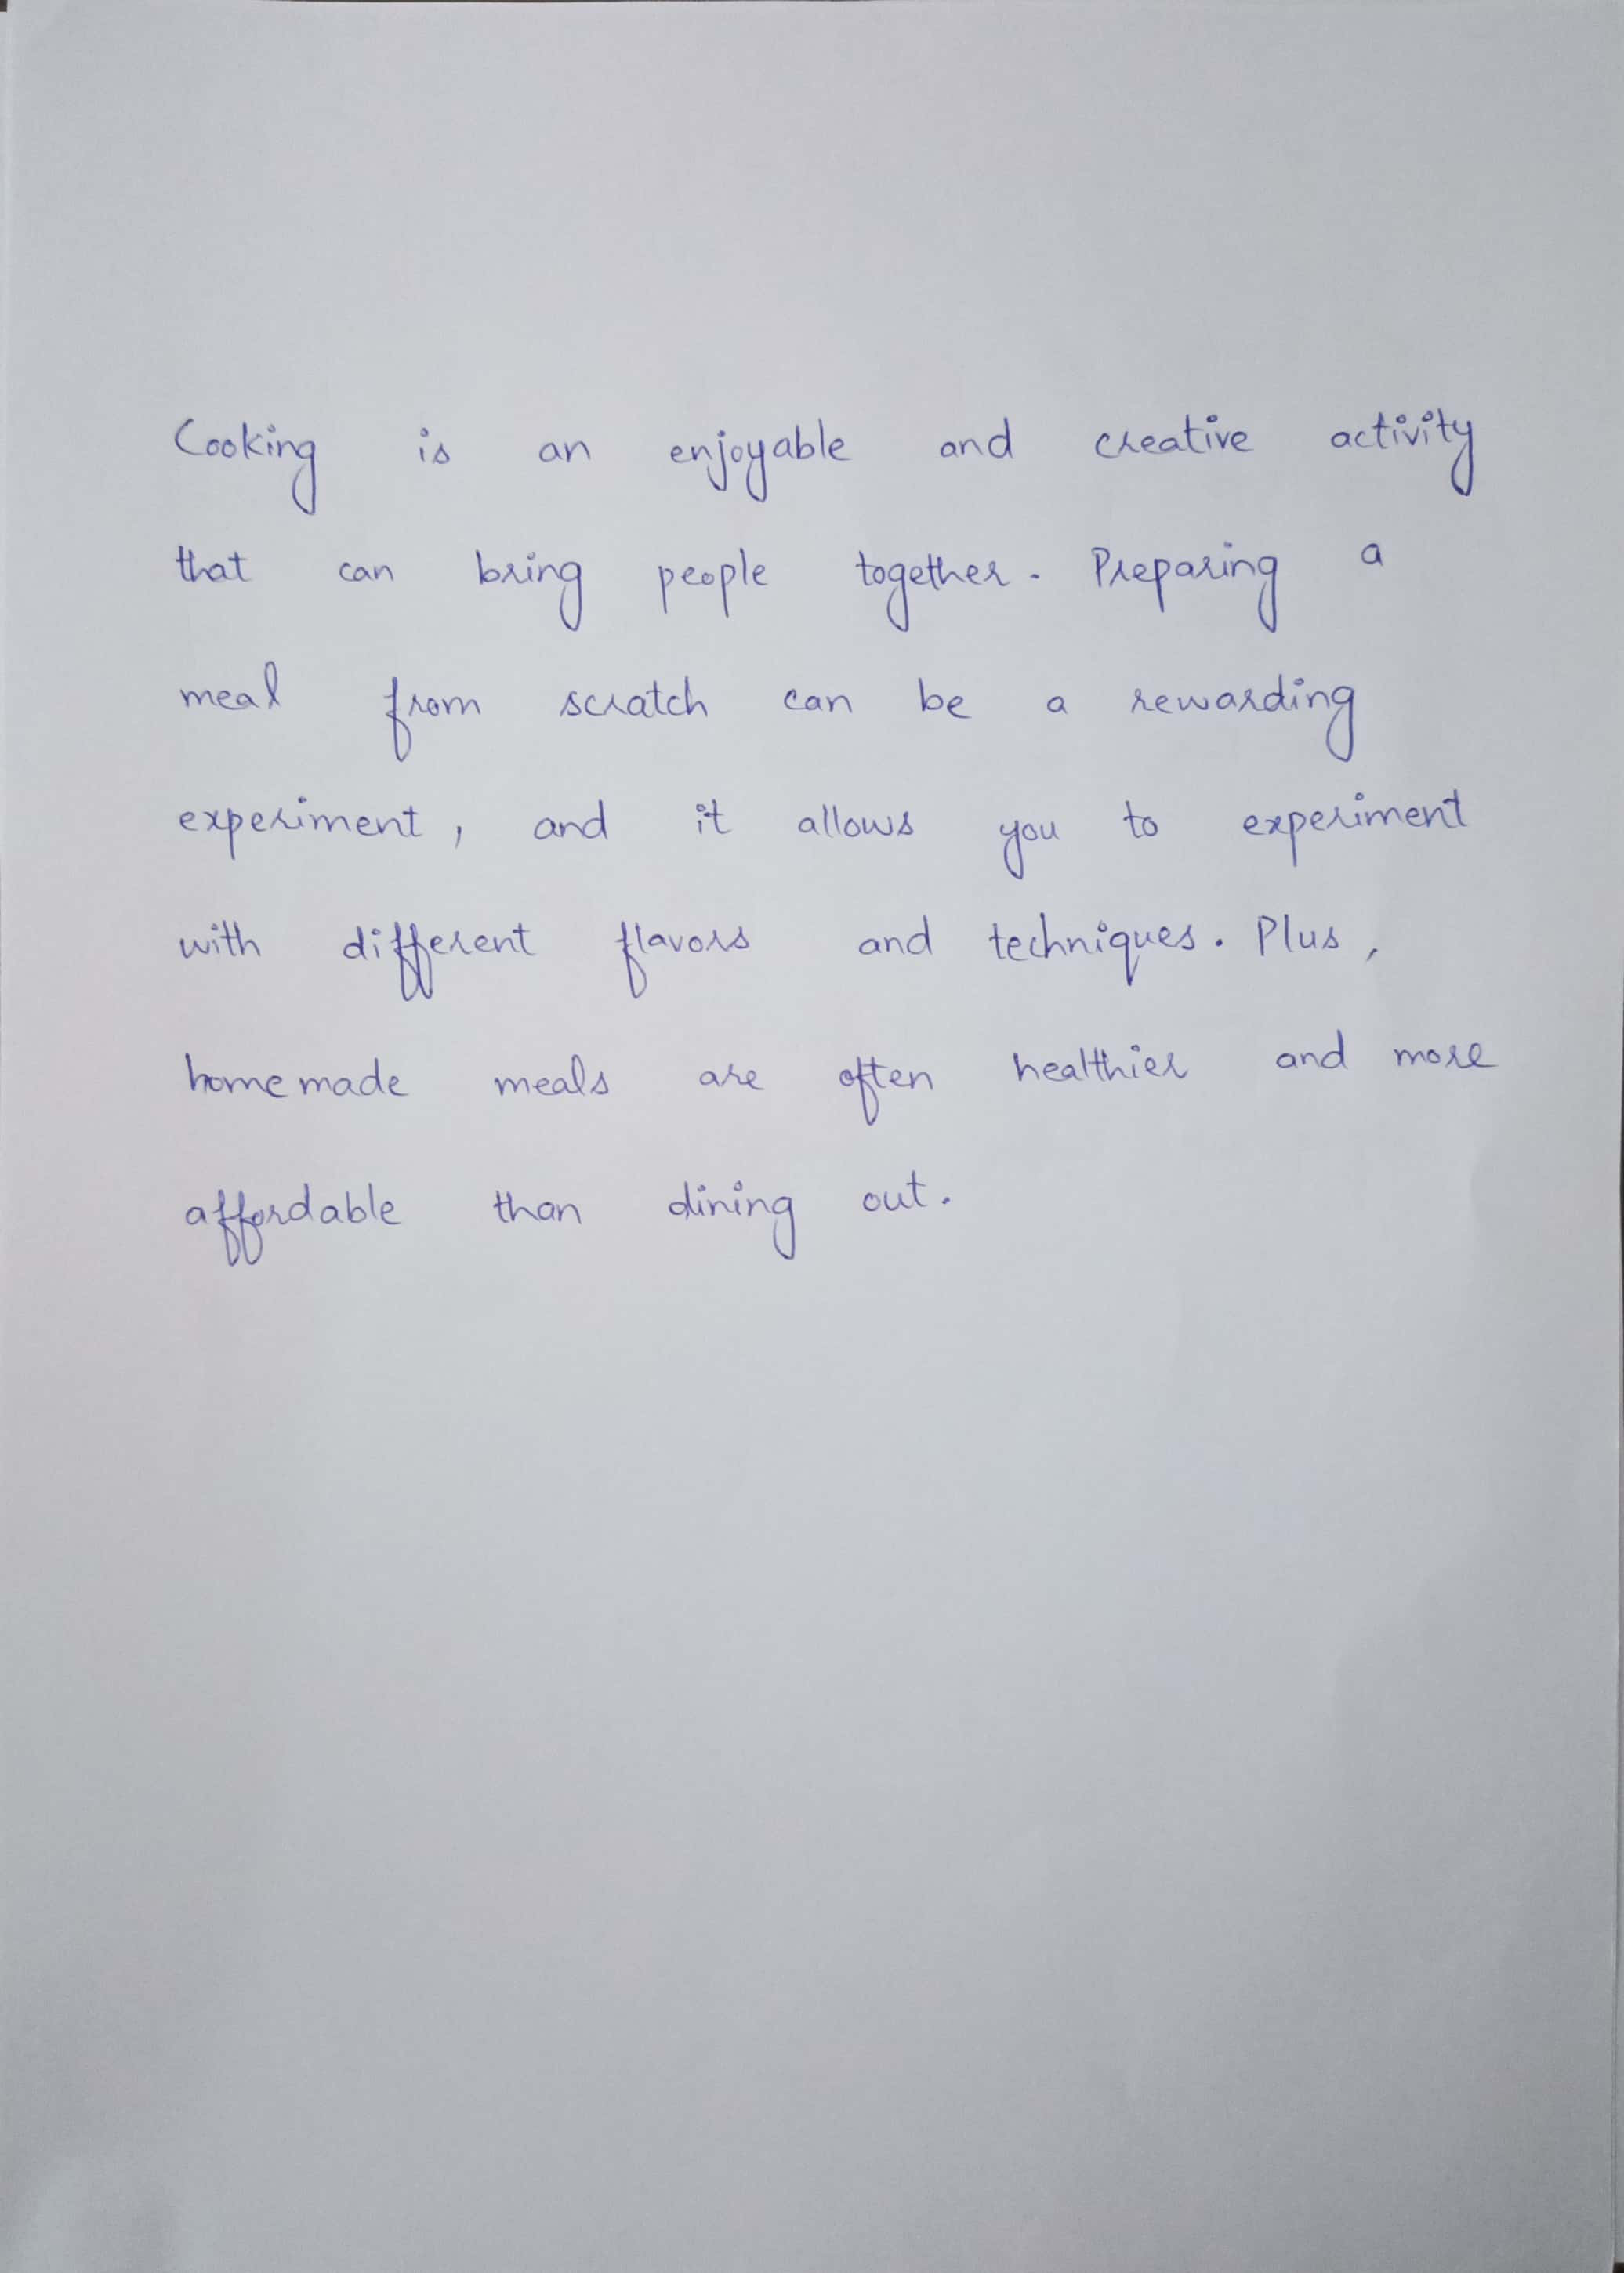 Cooking is an enjoyable and creative activity
that can bring people together. Preparing a
meal from scratch can be a rewarding
experiment, and it allows you to experiment
with different flavors and techniques. Plus,
homemade meals are often healthier and more
affordable than dining out.